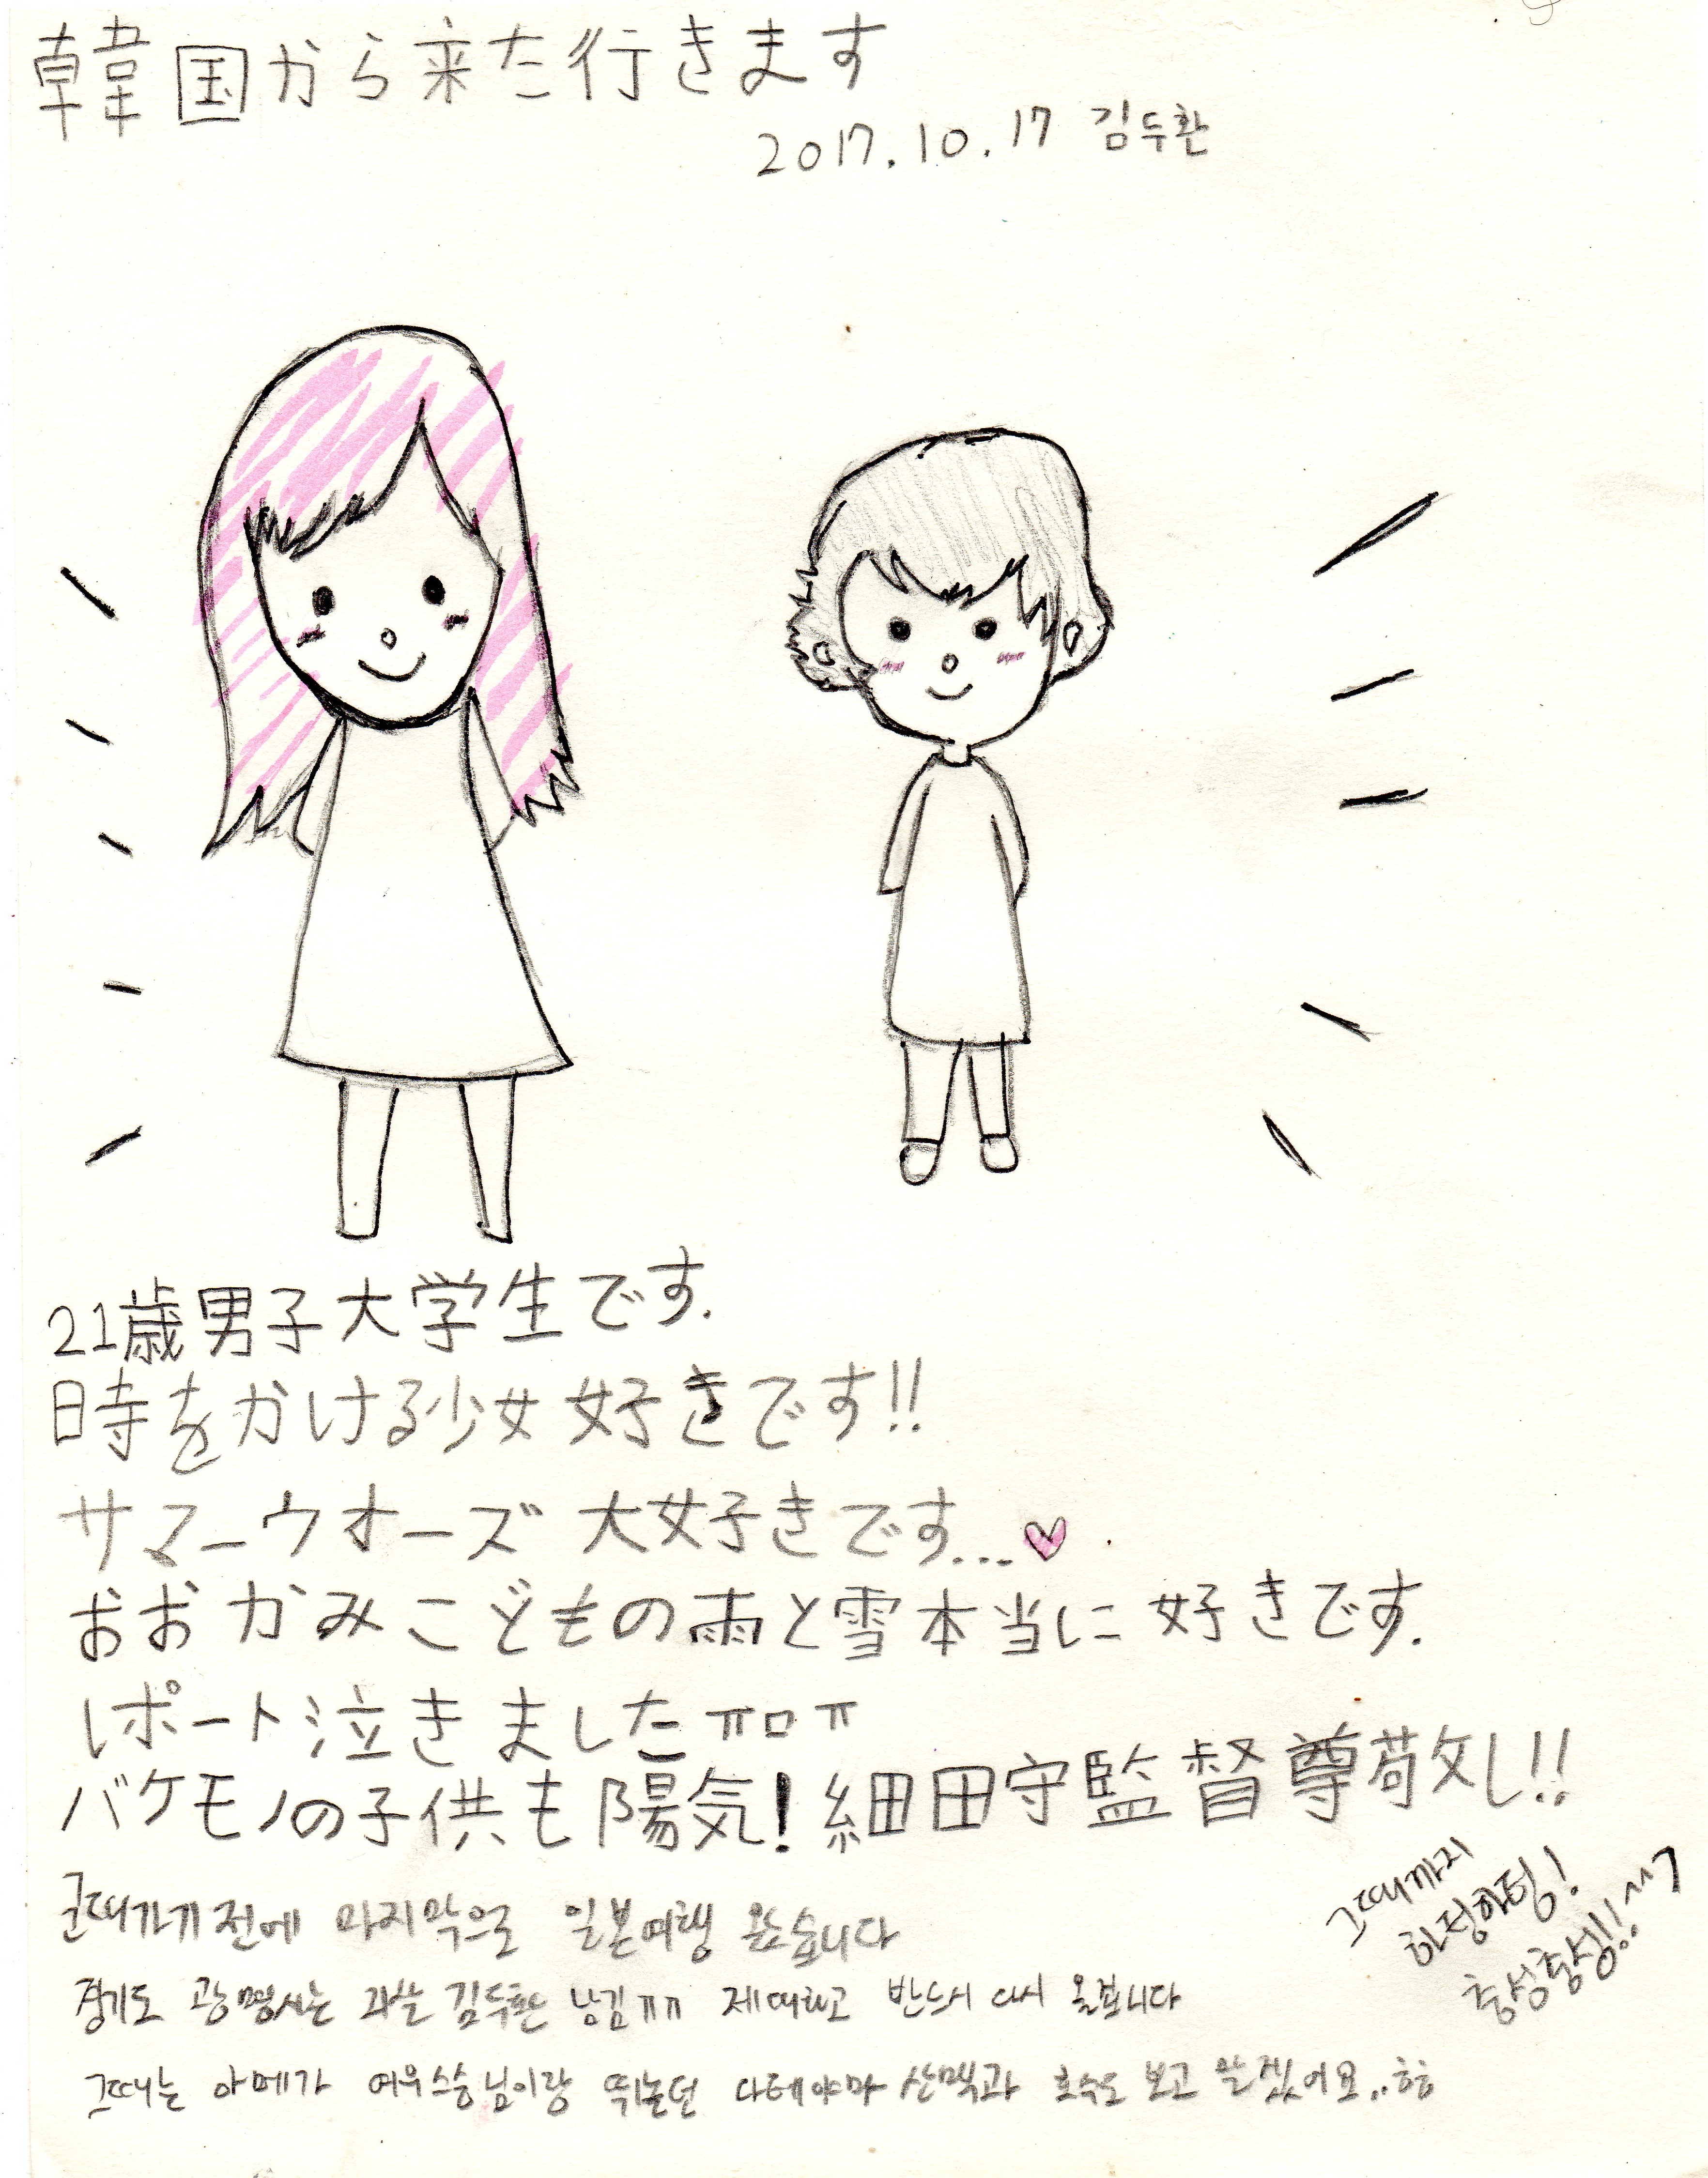 韓国から来た行きます
2017.10.17 김두환
21歳男子大学生です.
時をかける少女 好きです!!
サマーウオーズ 大好きです...♡
おおかみこどもの雨と雪本当に 好きです.
レポート泣きましたㅠㅁㅠ
バケモノの子供も陽気! 細田守監督尊敬し!!
군대가기전에 마지막으로 일본여행 왔습니다
경기도 광명시는 과는 김두환 남김ㅠㅠ 제대하고 반드시 다시 올겁니다
그때는 아메가 여우스승님이랑 뛰놀던 다테야마 산맥과 호수도 보고 말겠어요..ㅎㅎ
그때까지
화팅화팅!
충성충성!!^^7